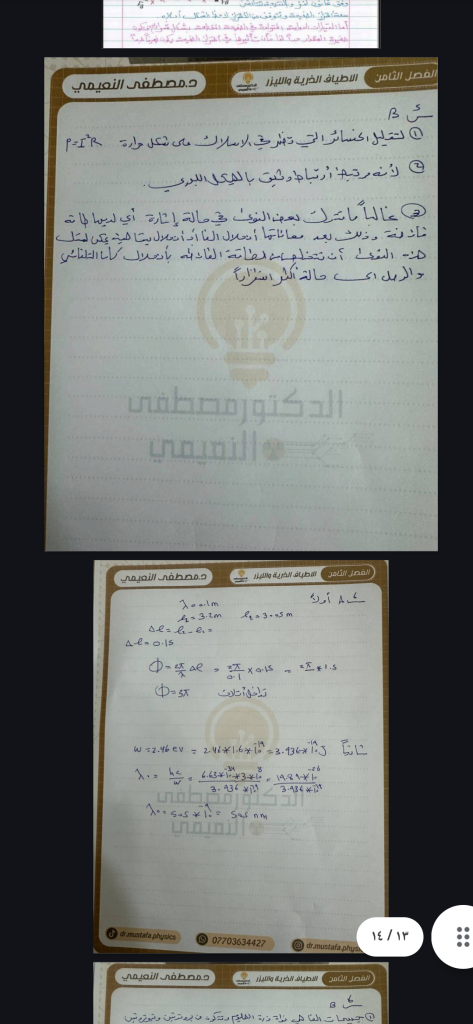 أما التيارات الدوامة
الفصل الثامن
الاطياف الذرية والليزر
د.مصطفى النعيمي
س B
① لتقليل الخسائر التي تظهر في الاسلاك على شكل حرارة P=I²R
② لأنه مرتبط ارتباط وثيق بالهيكل البلوري.
③ غالباً ما تترك بعض النوى في حالة إثارة أي لديها طاقة
فائضة وذلك بعد معاناتها أنحلال الفا أو أنحلال بيتا حيث يمكن لمثل
هذه النوى أن تتخلص من الطاقة الفائضة بأنحلال كاما التلقائي
والوصول الى حالة أكثر استقراراً
الدكتور مصطفى
النعيمي
الفصل الثامن
الاطياف الذرية والليزر
د.مصطفى النعيمي
A أولاً
λ = 0.1m
ℓ₂ = 3.2m ℓ₂ = 3.05m
Δℓ = ℓ₂ - ℓ₁ =
Δℓ = 0.15
Φ = 2π/λ Δℓ = 2π/0.1 × 0.15 = 2π * 1.5
Φ = 3π تداخل أتلاف
ثانياً W = 2.46 eV = 2.46 * 1.6 * 10⁻¹⁹ = 3.936 * 10⁻¹⁹ J
λ₀ = hc/w = 6.63*10⁻³⁴*3*10⁸ / 3.936*10⁻¹⁹ = 19.89*10⁻²⁶ / 3.936*10⁻¹⁹
λ₀ = 505 * 10⁻⁹ = 505 nm
الدكتور مصطفى
النعيمي
dr.mustafa.physics
07703634427
dr.mustafa.physi
١٣ / ١٤
الفصل الثامن
الاطياف الذرية والليزر
د.مصطفى النعيمي
B
① جسيمات الفا هي نواة ذرة الهليوم وتتكون من بروتونين ونيوترونين